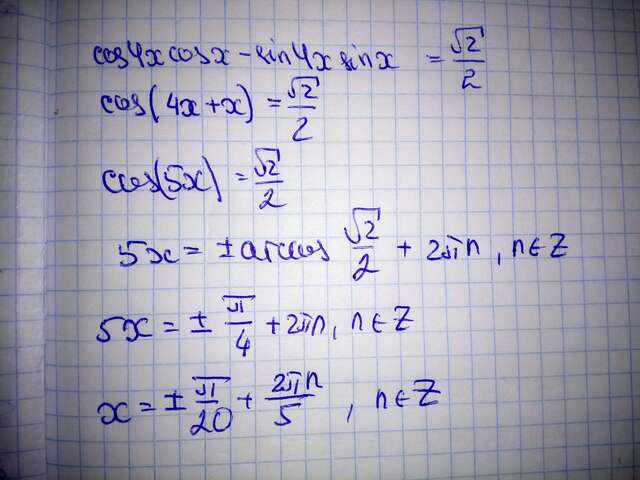 cos4x cosx - sin4x sinx = √2/2
cos(4x+x) = √2/2
cos(5x) = √2/2
5x = ± arccos √2/2 + 2πn, n∈Z
5x = ± π/4 + 2πn, n∈Z
x = ± π/20 + 2πn/5, n∈Z